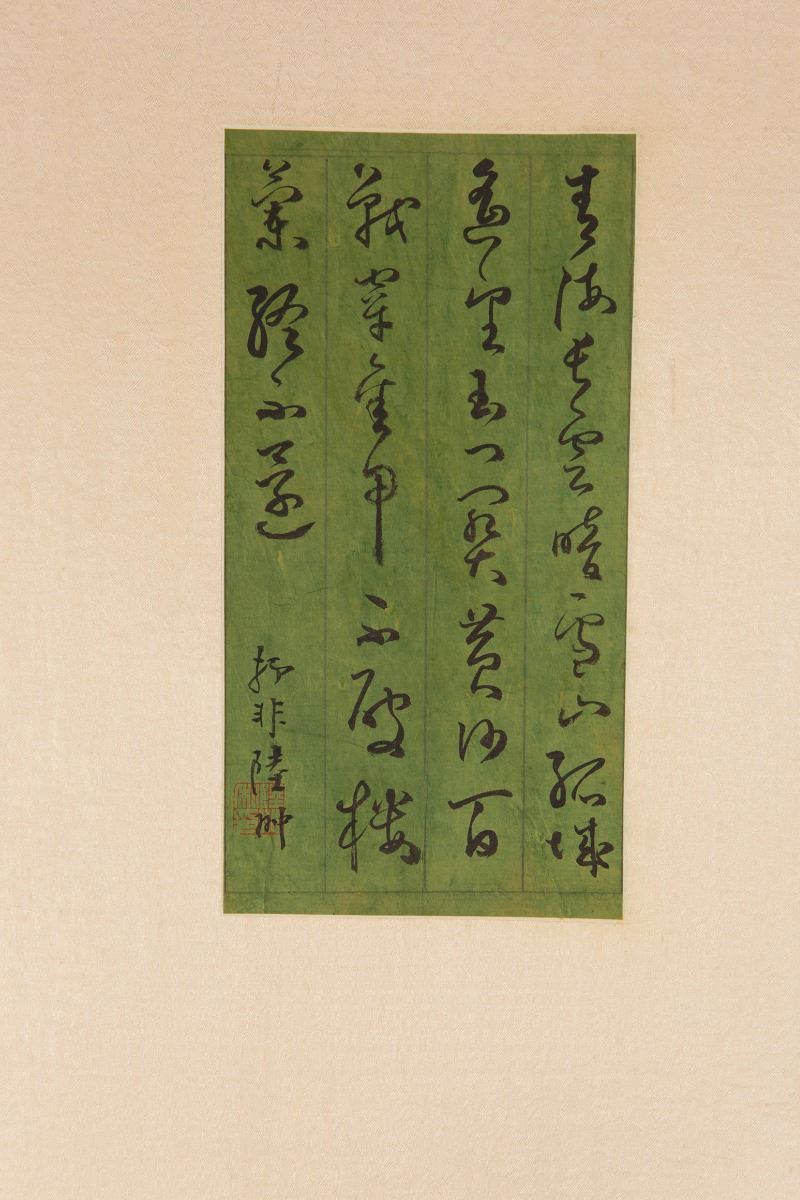 青海長雲暗雪山孤城
遙望玉門關黃沙百
戰穿金甲不破樓
蘭終不還
非陸